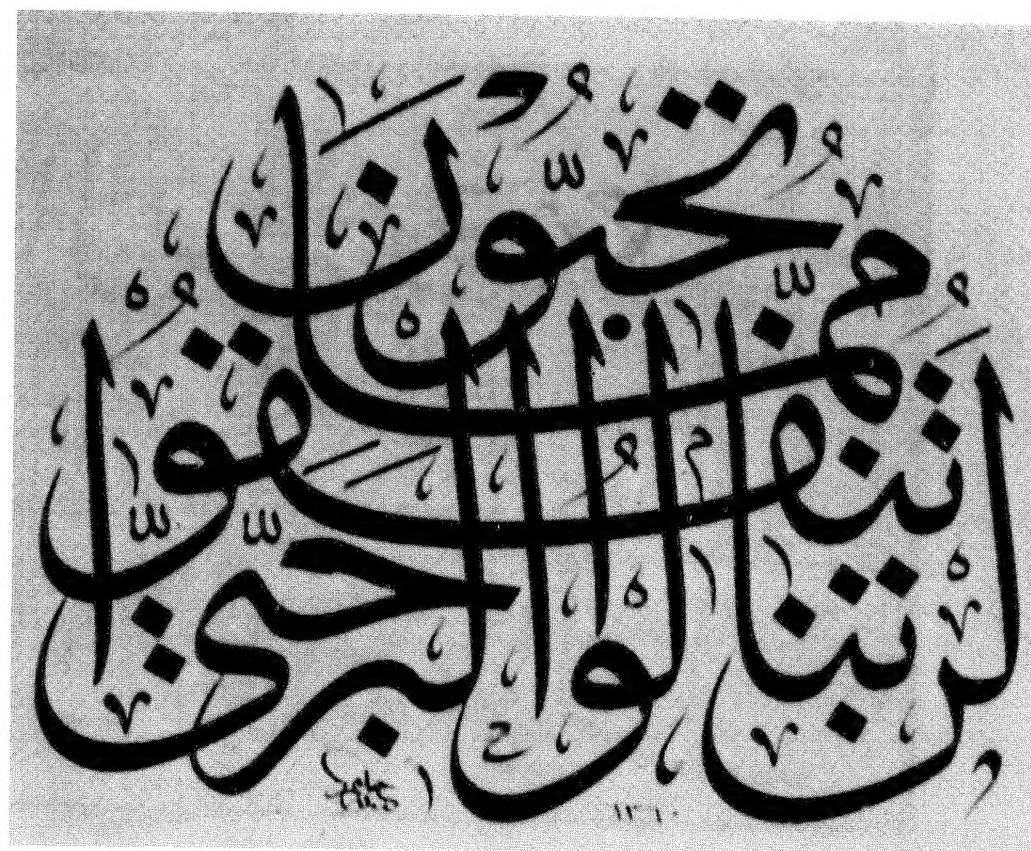 لَنْ تَنَالُوا الْبِرَّ حَتَّى
تُنْفِقُوا
مِمَّا
تُحِبُّونَ